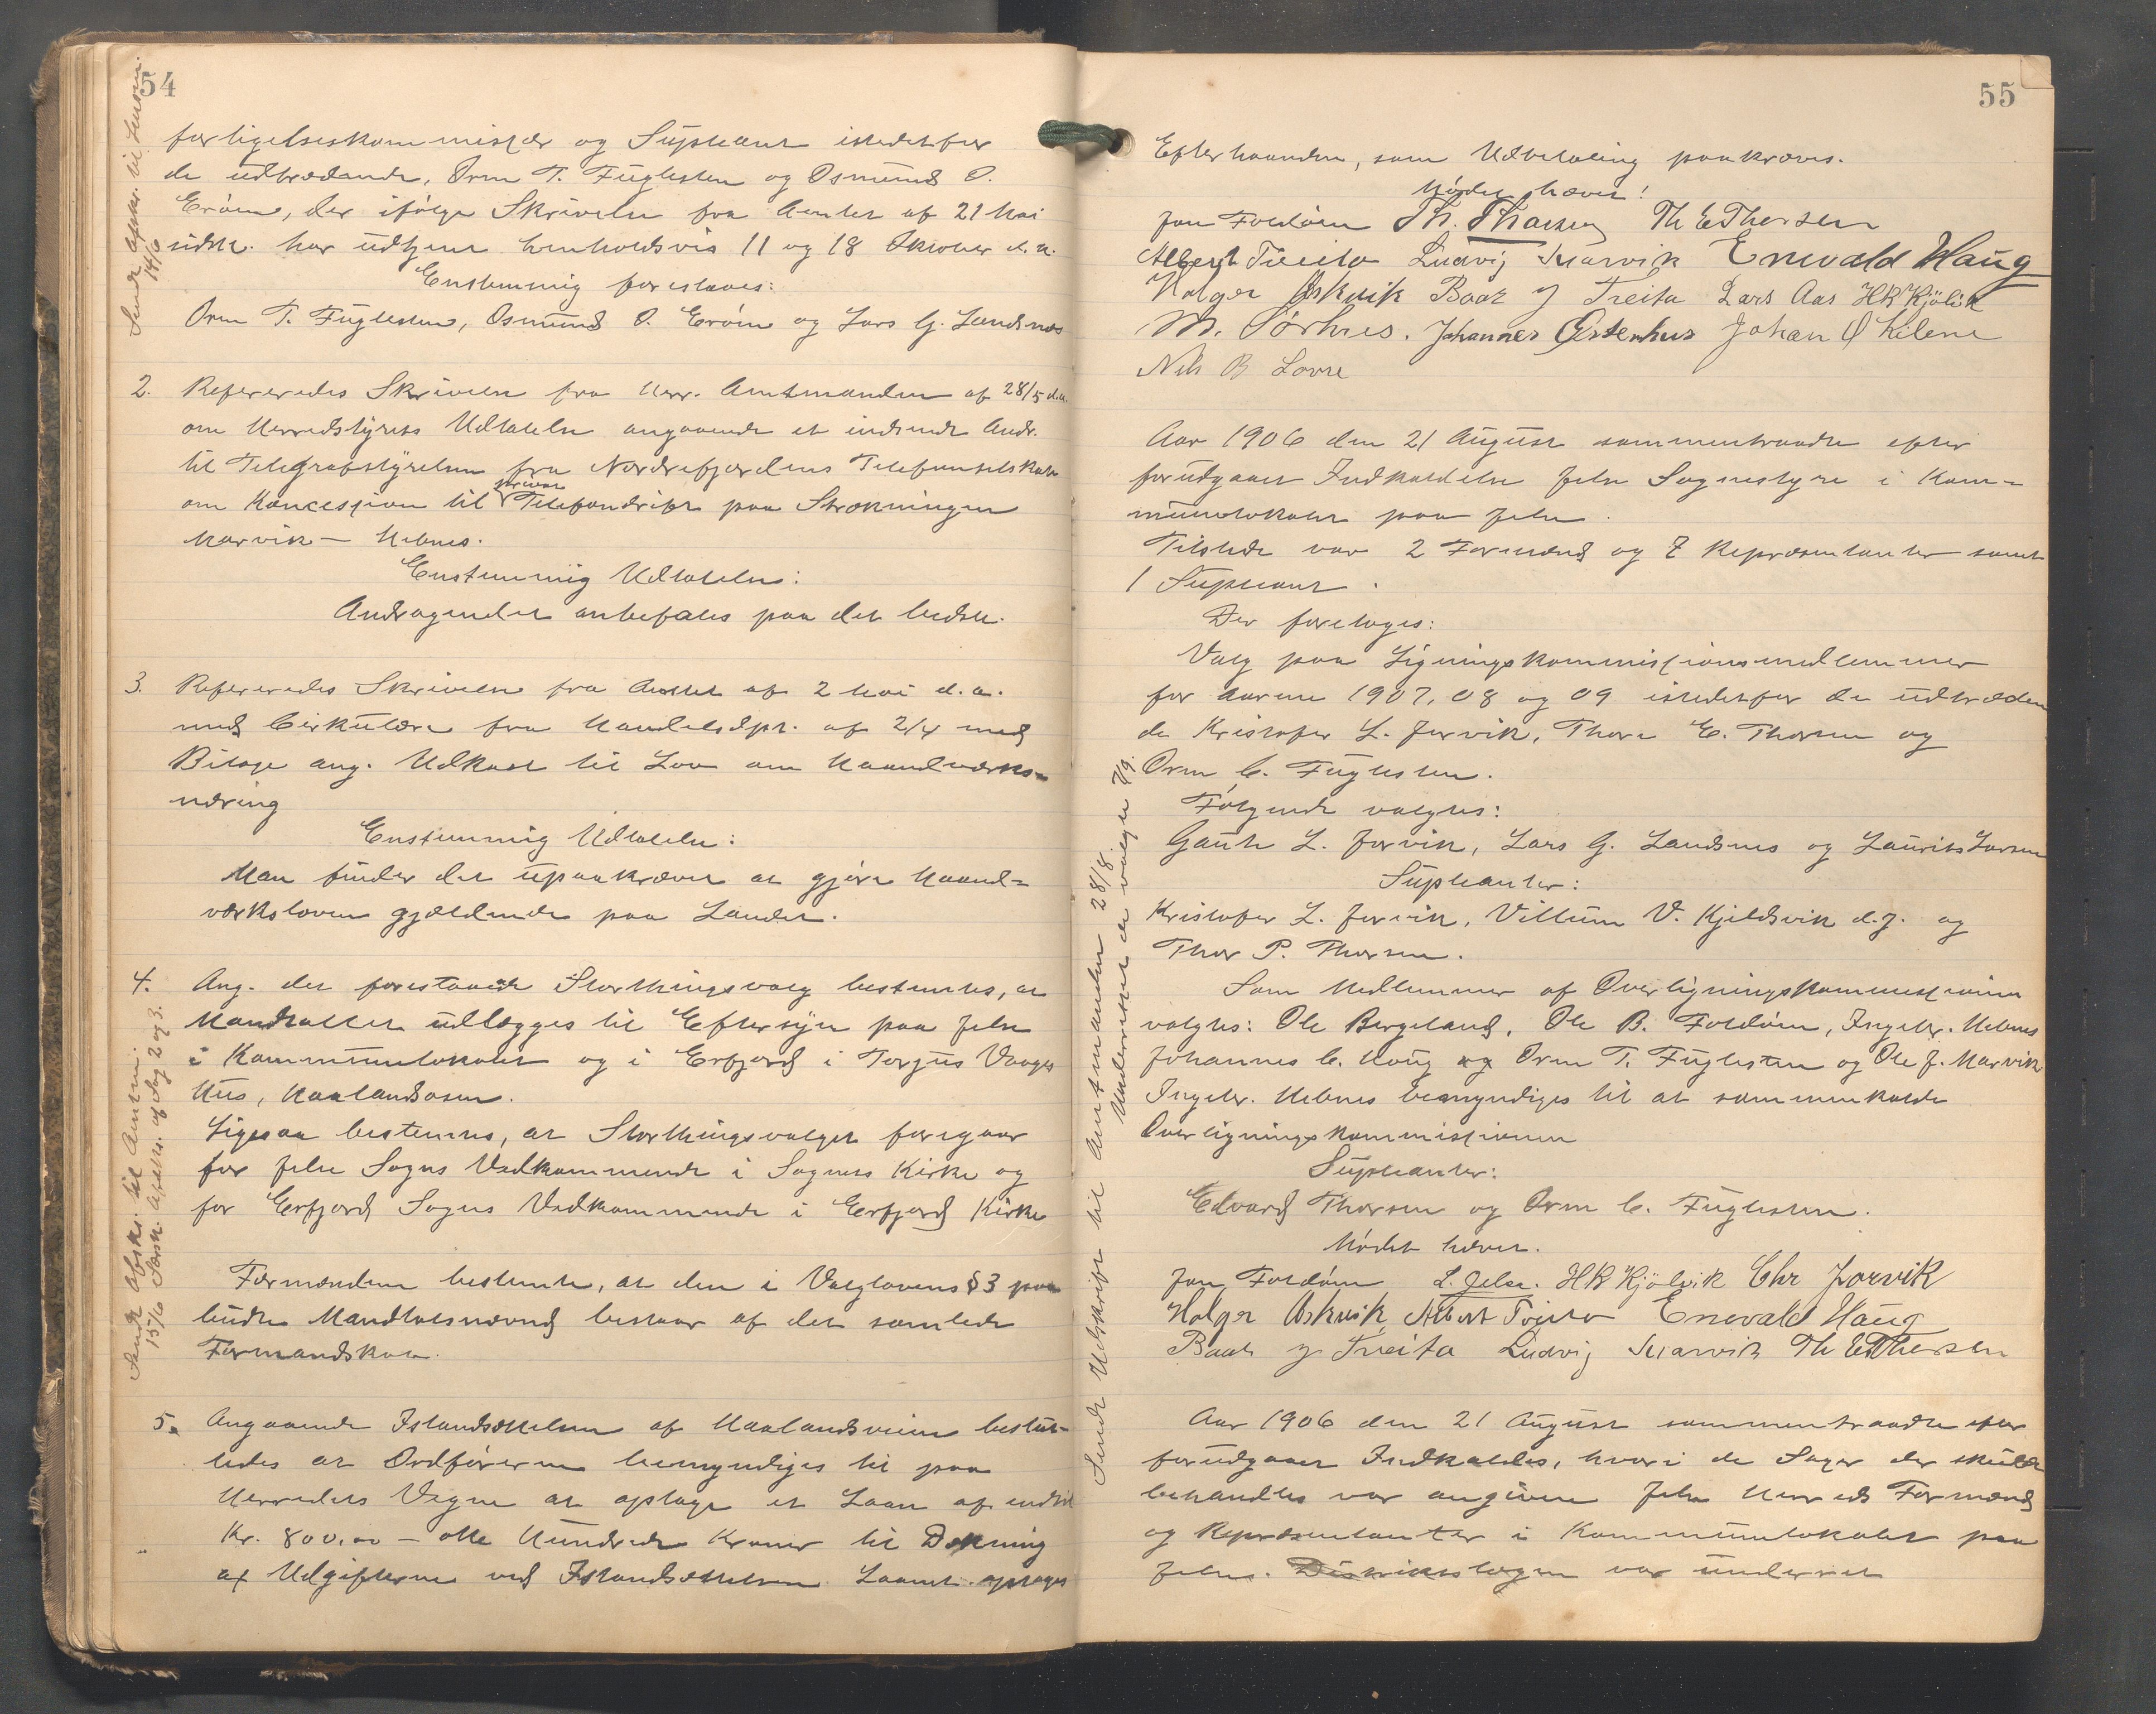 54
forligelseskommissær og Suppleant istedetfor
de udtrædende, Orm T. Fuglesten og Osmund O.
Erøen, der ifølge Skrivelse fra Amtet af 21 Mai
sidstl. har udtjent henholdsvis 11 og 18 Oktober d. a.
Enstemmig foreslaaes:
Orm T. Fuglesten, Osmund O. Erøen og Lars G. Landsnes
Sendt afskr. til Lensm. 14/6
2. Refereredes Skrivelse fra Herr. Amtmanden af 28/5 d.a.
om Herredstyrets Udtalelse angaaende et indsendt Andr.
til Telegrafstyrelsen fra Nordrefjordens Telefonselskab
om Koncession til privat Telefondrift paa Strækningen
Marvik – Hebnes.
Enstemmig Udtalelse:
Andragendet anbefales paa det bedste.
3. Refereredes Skrivelse fra Amtet af 2 Mai d. a.
med Cirkulære fra Handelsdpt. af 2/4 med
Bilage ang. Udkast til Lov om Haandværks-
næring
Enstemmig Udtalelse:
Man finder det upaakrævet at gjøre Haand-
værksloven gjældende paa Landet.
4. Ang. det forestaaende Storthingsvalg bestemtes, at
Mandtallet udlægges til Eftersyn paa Jelse
i Kommunelokalet og i Erfjord i Torgus Vaages
Hus, Haalandsosen.
Ligesaa bestemtes, at Storthingsvalget foregaar
for Jelse Sogns Vedkommende i Sognets Kirke og
for Erfjord Sogns Vedkommende i Erfjord Kirke
Formanden bestemte, at den i Valglovens § 3 paa
budte Mandtalsnævnd bestaar af det samlede
Formandskab.
Sendt afskr. til Amtm. 15/6 Særsk. afskr. af Sag 2 og 3.
5. Angaaende Istandsættelsen af Haalandsveien beslut-
tedes at Ordføreren bemyndiges til paa
Herredets Vegne at optage et Laan af indtil
Kr. 800,00 – otte Hundrede Kroner til Dækning
af Udgifterne ved Istandsættelsen. Laanet optages
55
Efterhaanden, som Udbetaling paakræves.
Mødet hævet!
Jon Foldøen Th. Thorsen Th E Thorsen
Albert Tveita Ludvig Marvik Enevald Haug
Holger Askvik Baar J Tveita Lars Aas HK Kjölvik
M. Sørhus. Johannes Østenhus Johan Ø Kilene
Nils B Lovre
Aar 1906 den 21 August sammentraadte efter
forudgaaet Indkaldelse Jelse Sognestyre i Kom-
munelokalet paa Jelse.
Tilstede var 2 Formænd og 7 Repræsentanter samt
1 Suppleant.
Der foretoges:
Valg paa Ligningskommissionsmedlemmer
for Aarene 1907, 08 og 09 istedetfor de udtræden
de Kristofer L. Jorvik, Thore E. Thorsen og
Orm C. Fuglesten.
Følgende valgtes:
Gaute L. Jorvik, Lars G. Landsnes og Laurits Larsen
Suppleanter:
Kristofer L. Jorvik, Villum V. Kjeldsvik d.y. og
Thor P. Thorsen.
Som Medlemmer af Overligningskommissionen
valgtes: Ole Bergeland, Ole B. Foldøen, Ingebr. Hebnes
Johannes C. Haug og Orm T. Fuglesten og Ole J. Marvik
Ingebr. Hebnes bemyndiges til at sammenkalde
Overligningskommissionen
Suppleanter:
Edvard Thorsen og Orm C. Fuglesten.
Mødet hævet.
Sendt Udskrift til Amtmanden 28/8. Underrettet de valgte 7/9.
Jon Foldøen L. Jelsa. HK Kjölvik Chr Jorvik
Holger Askvik Albert Tveita Enevald Haug
Baar J Tveita Ludvig Marvik Th E Thorsen
Aar 1906 den 21 August sammentraadte efter
forudgaaet Indkaldes, hvori de Sager der skulde
behandles var angivne Jelse Herreds Formænd
og Repræsentanter i Kommunelokalet paa
Jelse. Distriktslægen var underret